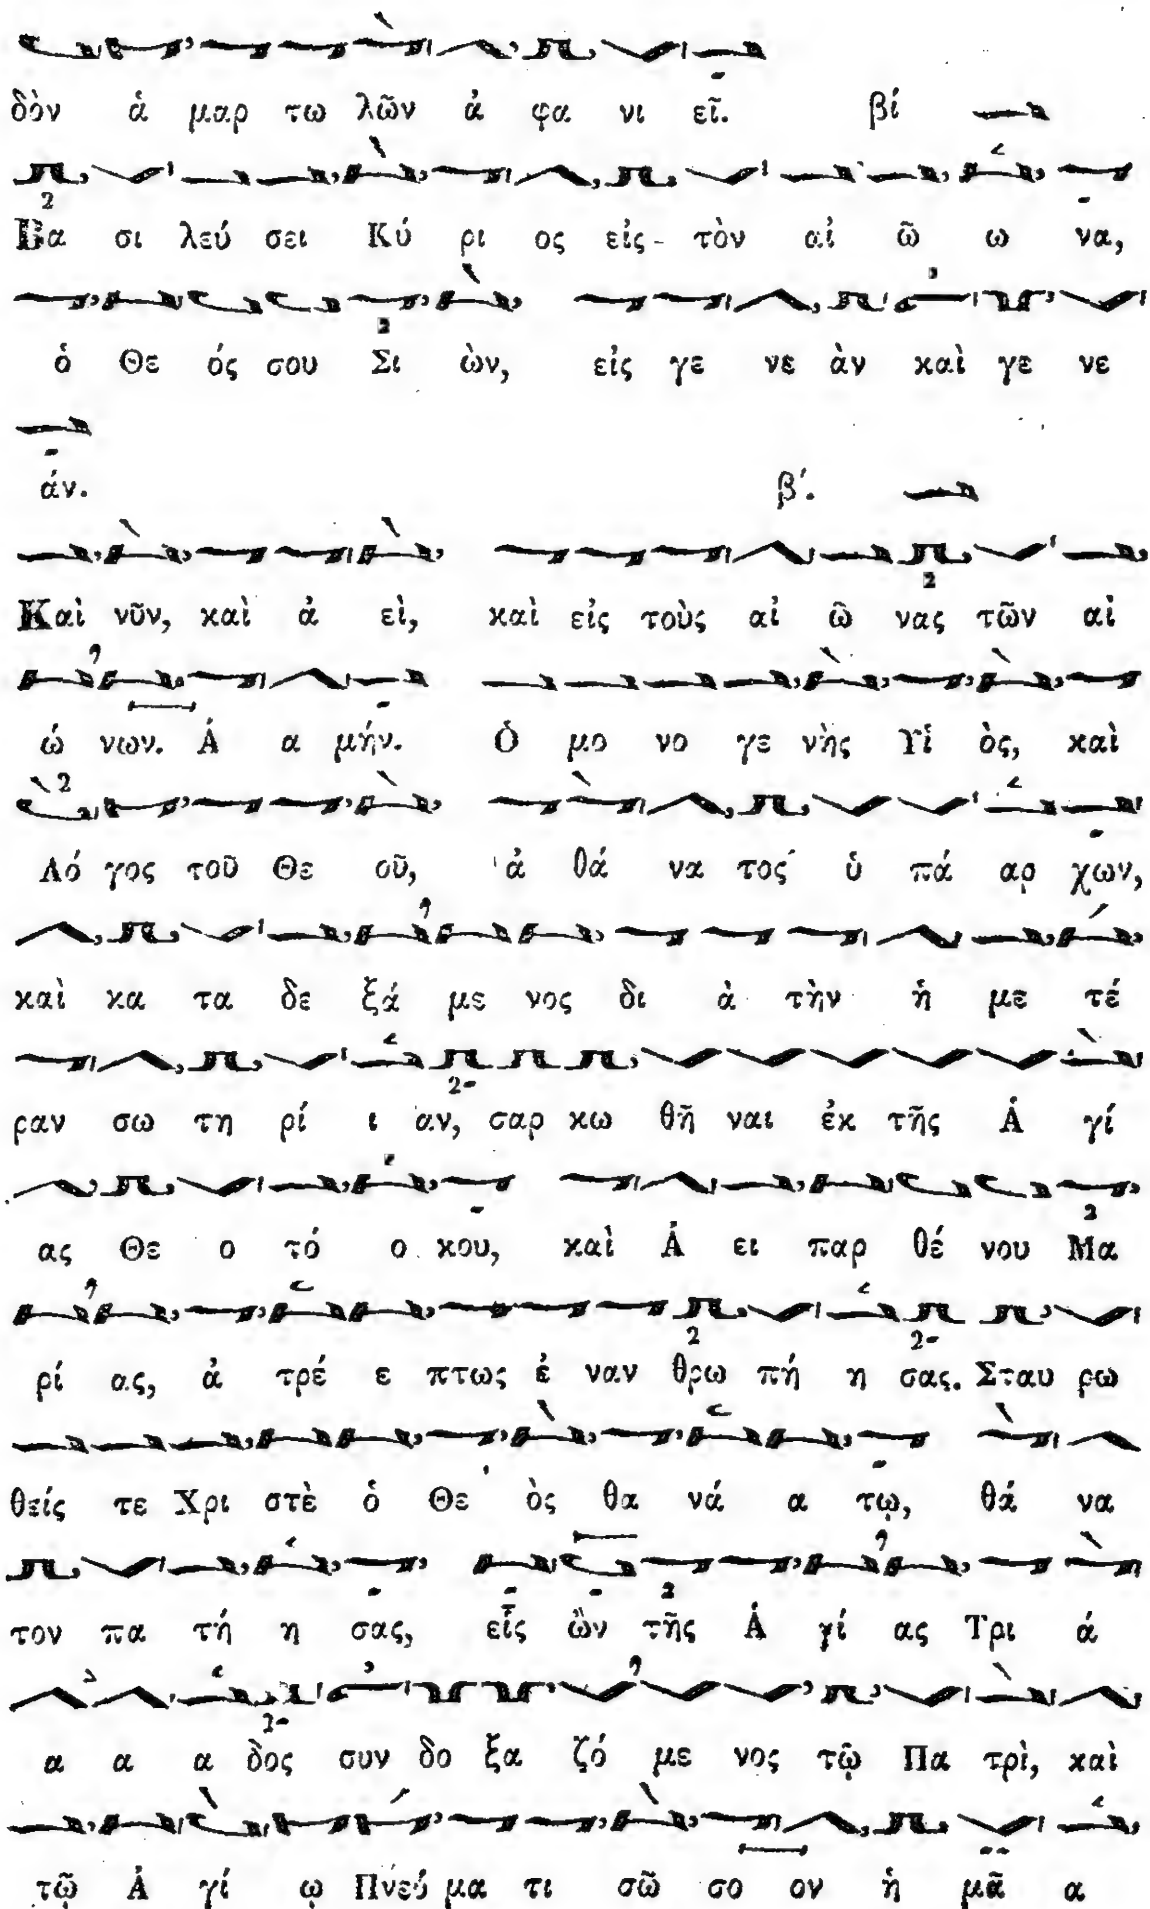 δὸν ἁ μαρ τω λῶν ἀ φα νι εῖ. βί
Βα σι λεύ σει Κύ ρι ος εἰς τὸν αἰ ῶ ω να,
ὁ Θε ός σου Σι ὼν, εἰς γε νε ὰν καὶ γε νε
άν. β΄.
Καὶ νῦν, καὶ ἀ εὶ, καὶ εἰς τοὺς αἰ ῶ νας τῶν αἰ
ώ νων. Ἀ α μήν. Ὁ μο νο γε νὴς Υἱ ὸς, καὶ
Λό γος τοῦ Θε οῦ, ἀ θά να τος ὑ πά αρ χων,
καὶ κα τα δε ξά με νος δι ὰ τὴν ἡ με τέ
ραν σω τη ρί ι αν, σαρ κω θῆ ναι ἐκ τῆς Ἁ γί
ας Θε ο τό ο κου, καὶ Ἀ ει παρ θέ νου Μα
ρί ας, ἀ τρέ ε πτως ἐ ναν θρω πή η σας. Σταυ ρω
θείς τε Χρι στὲ ὁ Θε ὸς θα νά α τῳ, θά να
τον πα τή η σας, εἷς ὢν τῆς Ἁ γί ας Τρι ά
α α α δος συν δο ξα ζό με νος τῷ Πα τρὶ, καὶ
τῷ Ἁ γί ῳ Πνεύ μα τι σῶ σο ον ἡ μᾶ α